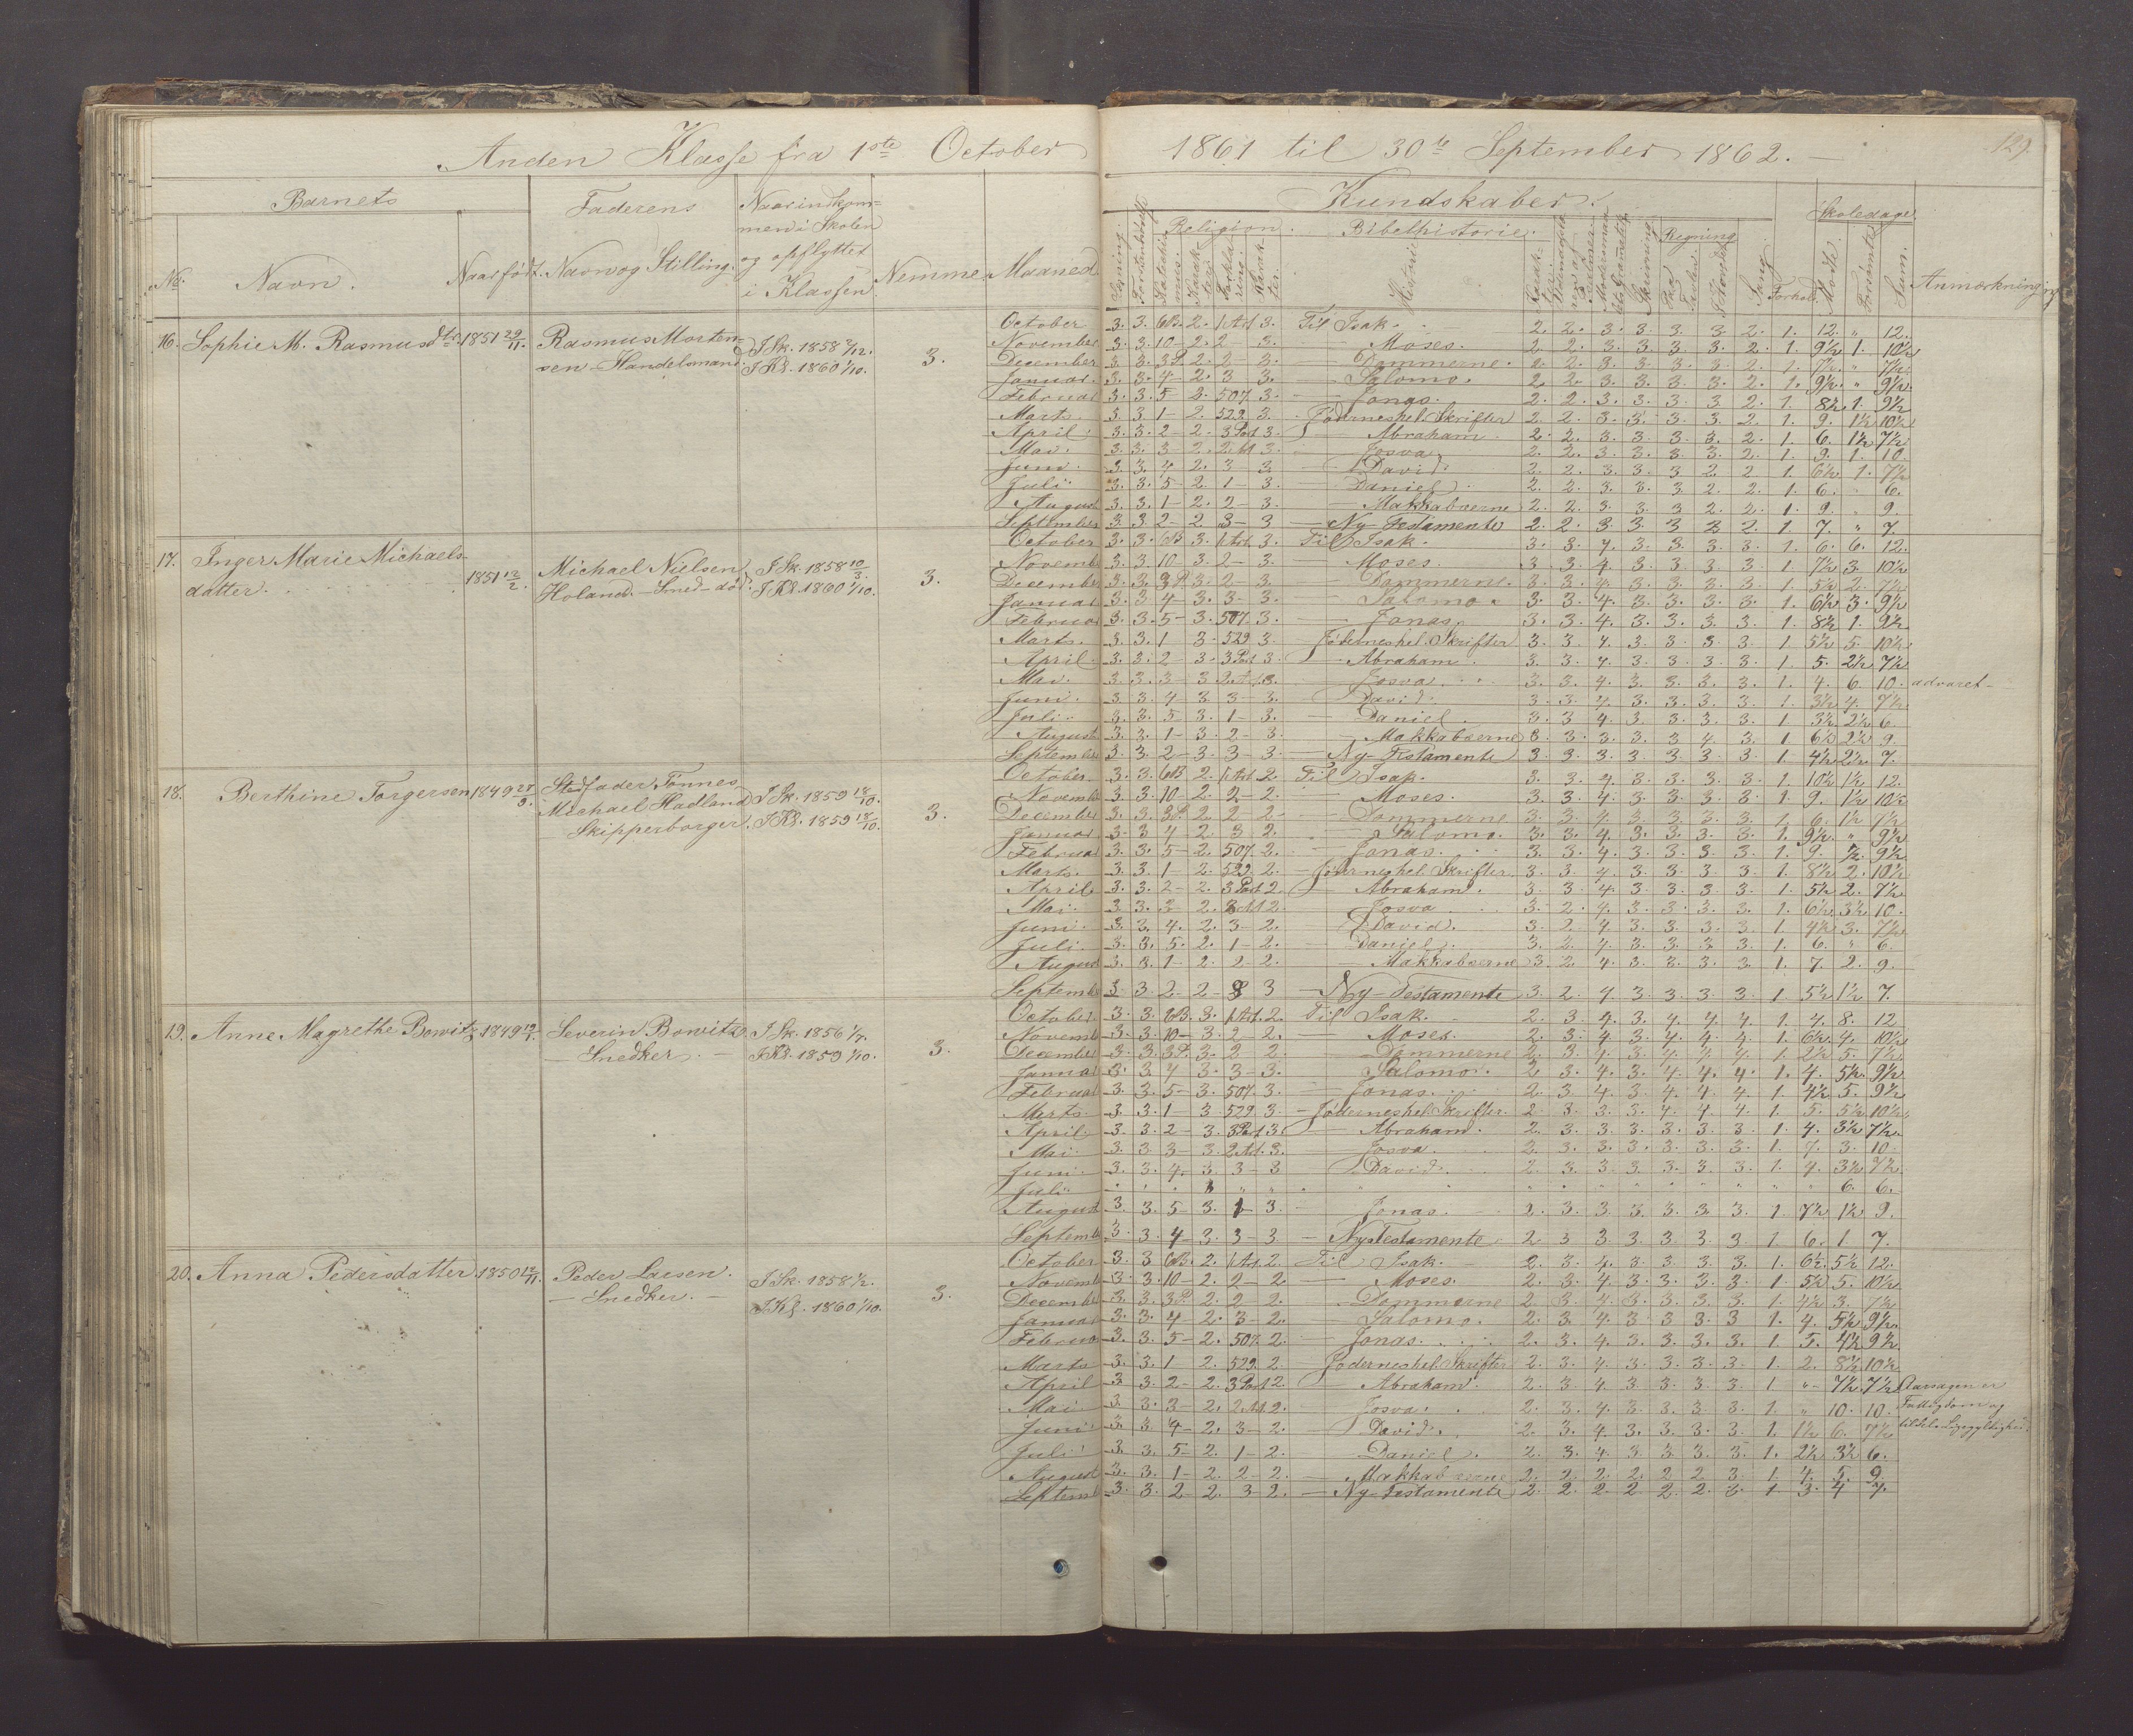 Anden Klasse fra 1ste October 1861 til 30te September 1862.
129.
Barnets Faderens Naar indkommen i Skolen og opflyttet i Klassen Nemme Maaned
No. Navn. Naar født. Navn og Stilling.
Kundskaber. Skoledage
Religion. Bibelhistorie. Regning
Historie Skrivning Sang Forhold Mødte. Forsømte Sum. Anmærkning
16. Sophie M. Rasmusdtr. 1851 29/11. Rasmus Mortensen - Handelsmand. I Sk. 1858 I Kl. 1860 1/10. 3.
October 3. 3. 6B. 2. 1 Art. 3. Til Isak. 2. 2. 3. 3. 3. 3. 2. 1. 12. " 12.
November 3. 3. 10 - 2. 2 - 3. — Moses. 2. 2. 3. 3. 3. 3. 2. 1. 9½ 1. 10½
December 3. 3. 3P. 2. 2 - 3. — Dommerne. 2. 2. 3. 3. 3. 3. 2. 1. 7½ " 7½
Januar. 3. 3. 4 - 2. 3 3. — Salomo. 2. 2. 3. 3. 3. 3. 2. 1. 9½ " 9½
Februar 3. 3. 5 - 2. 507. 3. — Jonas. 2. 2. 3. 3. 3. 3. 2. 1. 8½ 1. 9½
Marts. 3. 3. 1 - 2. 529. 3. - Jødernes hel. Skrifter 2. 2. 3. 3. 3. 3. 2. 1. 9. 1½ 10½
April. 3. 3. 2 - 2. 3 Part 3. — Abraham. 2. 2. 3. 3. 3. 3. 2. 1. 6. 1½ 7½
Mai. 3. 3. 3 - 2. 2 Art 3. — Josva. 2. 2. 3. 3. 3. 3. 2. 1. 9. 1. 10.
Juni. 3. 3. 4 - 2. 3 - 3. — David. 2. 2. 3. 3. 3. 2 2 1. 6½ 1. 7½
Juli. 3. 3. 5 - 2. 1 - 3. — Daniel. 2. 2. 3. 3. 3. 2. 2. 1. 6. 6.
August 3. 3. 1 - 2. 2 - 3. — Makkabæerne 2. 2. 3. 3. 3 2 2. 1. 9. 9.
September 3. 3. 2 - 2. 3 - 3 — Ny Testamente 2. 2. 3. 3. 3 2 2 1. 7. " 7
17. Inger Marie Michaelsdatter. 1851 12/2. Michael Nielsen Holand. - Smed - død. I Sk. 1858 10/3. I Kl. 1860 1/10. 3.
October 3. 3. 6B 3. 1 Art. 3. Til Isak. 3. 3. 4. 3. 3. 3. 3. 1. 6. 6. 12.
Novemb 3. 3. 10 3. 2 - 3. — Moses. 3. 3 4. 3. 3. 3. 3. 1. 7½ 3. 10½
December 3. 3. 3P. 3. 2 - 3. — Dommerne. 3. 3. 4. 3. 3. 3. 3. 1. 5½ 2. 7½
Januar 3. 3 4 - 3. 3 - 3. — Salomo. 3. 3. 4. 3. 3. 3. 3. 1. 6½ 3. 9½
Februar 3. 3. 5 - 3. 507. 3. — Jonas. 3. 3. 4. 3. 3. 3. 3. 1. 8½ 1. 9½
Marts. 3. 3. 1 3. 529 3. — Jødernes hel. Skrifter 3. 3. 4. 3. 3. 3 3. 1. 5½ 5. 10½
April. 3. 3. 2 - 3. 3 Part 3. — Abraham. 3. 3. 4. 3. 3. 3. 3. 1. 5. 2½ 7½
Mai. 3. 3. 3 - 3. 2. Art 3. — Josva. 3. 3. 4. 3. 3. 3. 3. 1. 4. 6. 10. advaret -
Juni. 3. 3. 4 3. 3 - 3. — David. 3. 3. 4. 3. 3. 3. 3. 1. 3½ 4. 7½
Juli. 3. 3. 5 - 3. 1 - 3. — Daniel. 3. 3 4. 3 3. 3. 3. 1 3½ 2½ 6.
August 3. 3. 1 - 3. 2 - 3. — Makkabæerne 3. 3. 3. 3. 3. 4. 3. 1 6½ 2½ 9.
September 3. 3. 2 - 3. 3 - 3 — Ny Testamente 3. 3. 3. 3. 3. 3. 3. 1. 4½ 2½ 7.
18. Berthine Torgersen 1849 Stedfader Tønnes Michael Hadland - Skipperborger. I Sk. 1859 18/10. I Kl. 1859 18/10. 3.
October 3. 3. 6B 2. 1 Art. 2. Til Isak. 3. 3. 4. 3. 3. 3. 3. 1. 10½ 1½ 12.
Novemb 3. 3. 10 - 2. 2 - 2. — Moses. 3. 3. 4. 3. 3. 3. 3. 1. 9. 1½ 10½
December 3. 3. 3P. 2. 2 2 — Dommerne 3. 3. 4. 3. 3. 3. 3. 1. 6. 1½ 7½
Januar. 3. 3 4 2. 3 2. — Salomo. 3. 3. 4. 3. 3. 3. 3. 1. 9½ " 9½
Februar 3. 3. 5 - 2. 507. 2. — Jonas. 3. 3. 4. 3. 3. 3. 3. 1. 9. ½ 9½
Marts. 3. 3. 1 - 2. 529. 2. — Jødernes hel. Skrifter. 3. 3. 4. 3. 3. 3. 3. 1. 8½ 2. 10½
April. 3. 3. 2 - 2. 3 Part 2. — Abraham. 3. 3. 4. 3. 3. 3. 3. 1. 5½ 2. 7½
Mai. 3. 3. 3 - 2. 2 Art 2. — Josva 3. 2. 4. 3. 3. 3. 3. 1. 6½ 3½ 10.
Juni. 3. 3. 4. 2. 3 - 2. — David. 3. 2. 4. 3. 3. 3. 3. 1. 4½ 3. 7½
Juli. 3. 3. 5. 2. 1 - 2. — Daniel. 3. 2. 4. 3. 3. 3. 3. 1. 6. " 6.
August 3. 3. 1 - 2. 2 - 2. — Makkabæerne 3. 2. 4. 3. 3. 3. 3. 1. 7. 2. 9.
Septemb 3. 3. 2 - 2 - 3 3 — Ny Testamente 3. 2. 4. 3. 3. 3. 3. 1. 5½ 1½ 7.
19. Anne Magrethe Bowitz 1849 Severin Bowitz - Snedker. - I Sk. 1856 I Kl. 1859 1/10. 3.
October. 3. 3. 6B. 3. 1 Art. 2. Til Isak. 2. 3. 4. 3. 4. 4. 4. 1. 4. 8. 12.
Novemb 3. 3. 10 - 3. 2 - 2. — Moses. 2. 3. 4. 3. 4. 4. 4. 1. 6½ 4. 10½
December 3. 3. 3P. 3. 2 2. — Dommerne 2. 3. 4. 3. 4. 4. 4. 1. 2½ 5. 7½
Januar 3. 3. 4 3. 3 - 3. — Salomo. 2. 3. 4. 3. 4. 4. 4. 1. 4. 5½ 9½
Februar 3. 3. 5 - 3. 507. 3. — Jonas. 2. 3. 4. 3. 4. 4. 4. 1. 4½ 5. 9½
Marts. 3. 3. 1 3. 529. 3. — Jødernes hel. Skrifter. 2. 3. 3. 3. 4. 4. 4. 1. 5. 5½ 10½
April. 3. 3. 2 - 3. 3 Part 3. — Abraham. 2. 3. 3. 3. 3. 3. 3. 1. 4. 3½ 7½
Mai. 3. 3. 3 - 3. 2 Art. 3. — Josva. 2. 3. 3. 3. 3. 3. 3. 1. 7. 3. 10.
Juni. 3. 3. 4. 3. 3 - 3 — David. 2. 3. 3. 3. 3. 3. 3. 1. 4. 3½ 7½
Juli. " " " " " " " " " " " " " " " " 6. 6.
August 3. 3. 5 - 3. 1 - 3. — Jonas. 2. 3. 3. 3. 3. 3. 3. 1. 7½ 1½ 9.
Septemb 3. 3. 4 - 3. 3 - 3 — Ny Testamente 2. 3 3. 3. 3. 3. 3. 1. 6. 1 7.
20. Anna Pedersdatter 1850 12/11. Peder Larsen. - Snedker. - I Sk. 1858 ½. I Kl. 1860 1/10. 3.
October 3. 3 6B. 2. 1 Art. 2. Til Isak. 2. 3. 4. 3. 3. 3. 3. 1. 6½ 5½ 12.
Novemb 3. 3. 10 - 2. 2 - 2 — Moses. 2. 3. 4. 3. 3. 3. 3. 1. 5½ 5. 10½
Decemb 3. 3. 3P. 2. 2 - 2. — Dommerne 2. 3. 4. 3. 3. 3. 3. 1. 4½ 3. 7½
Januar 3. 3. 4 - 2. 3 - 2. — Salomo. 2. 3. 4. 3. 3. 3. 3 1. 4. 5½ 9½
Februar 3. 3. 5 - 2. 507. 2. — Jonas. 2. 3. 4. 3. 3. 3. 3. 1. 5. 4½ 9½
Marts 3. 3. 1 - 2. 529. 2. — Jødernes hel. Skrifter 2. 3. 4. 3. 3. 3. 3. 1 2. 8½ 10½
April 3. 3. 2 - 2. 3 Part 2. — Abraham. 2. 3. 4. 3. 3. 3. 3. 1. " 7½ 7½ Aarsagen er
Mai 3. 3. 3 - 2. 2 Art. 2. — Josva. 2. 3. 4. 3. 3. 3. 3. 1. " 10. 10. Fattigdom og
Juni 3. 3. 4 - 2. 3 - 2. — David. 2. 3. 4. 3. 3. 3. 3. 1. 1½ 6. 7½ tildels Ligegyldighed.
Juli. 3. 3. 5 - 2. 1 - 2. — Daniel. 2. 3. 4. 3. 3. 3. 3. 1. 2½ 3½ 6.
August 3. 3. 1 - 2. 2 - 2. — Makkabæerne 2. 2. 2. 2. 2. 2. 3. 1. 4. 5. 9.
Septemb 3. 3. 2 - 2. 3 - 2. — Ny Testamente 2. 2. 2. 2 2. 2. 3. 1. 3. 4 7.